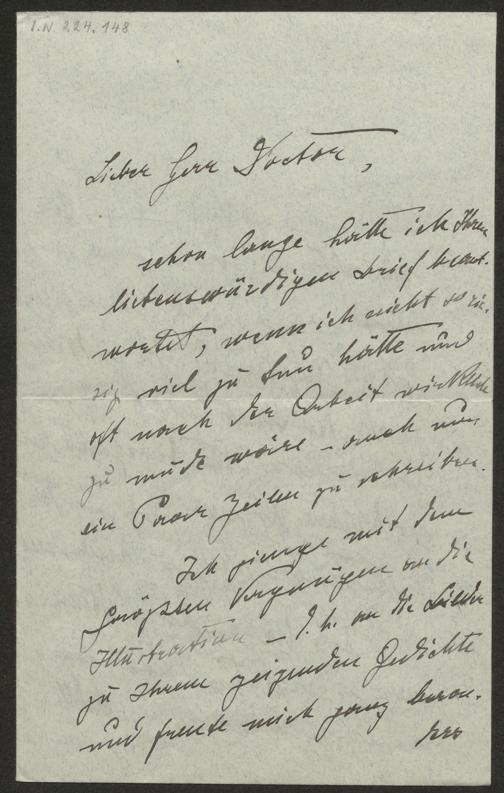 I.N. 224.148
Lieber Herr Doctor,
schon lange hätte ich Ihren
liebenswürdigen Brief beant-
wortet, wenn ich nicht so rie-
sig viel zu tun hätte und
oft nach der Arbeit wirklich
zu müde wäre – auch nur
ein Paar Zeilen zu schreiben.
Ich gienge mit dem
größten Vergnügen an die
Illustration – d. h. an die Bilder
zu Ihrem Gedichte
und freute mich ganz beson-